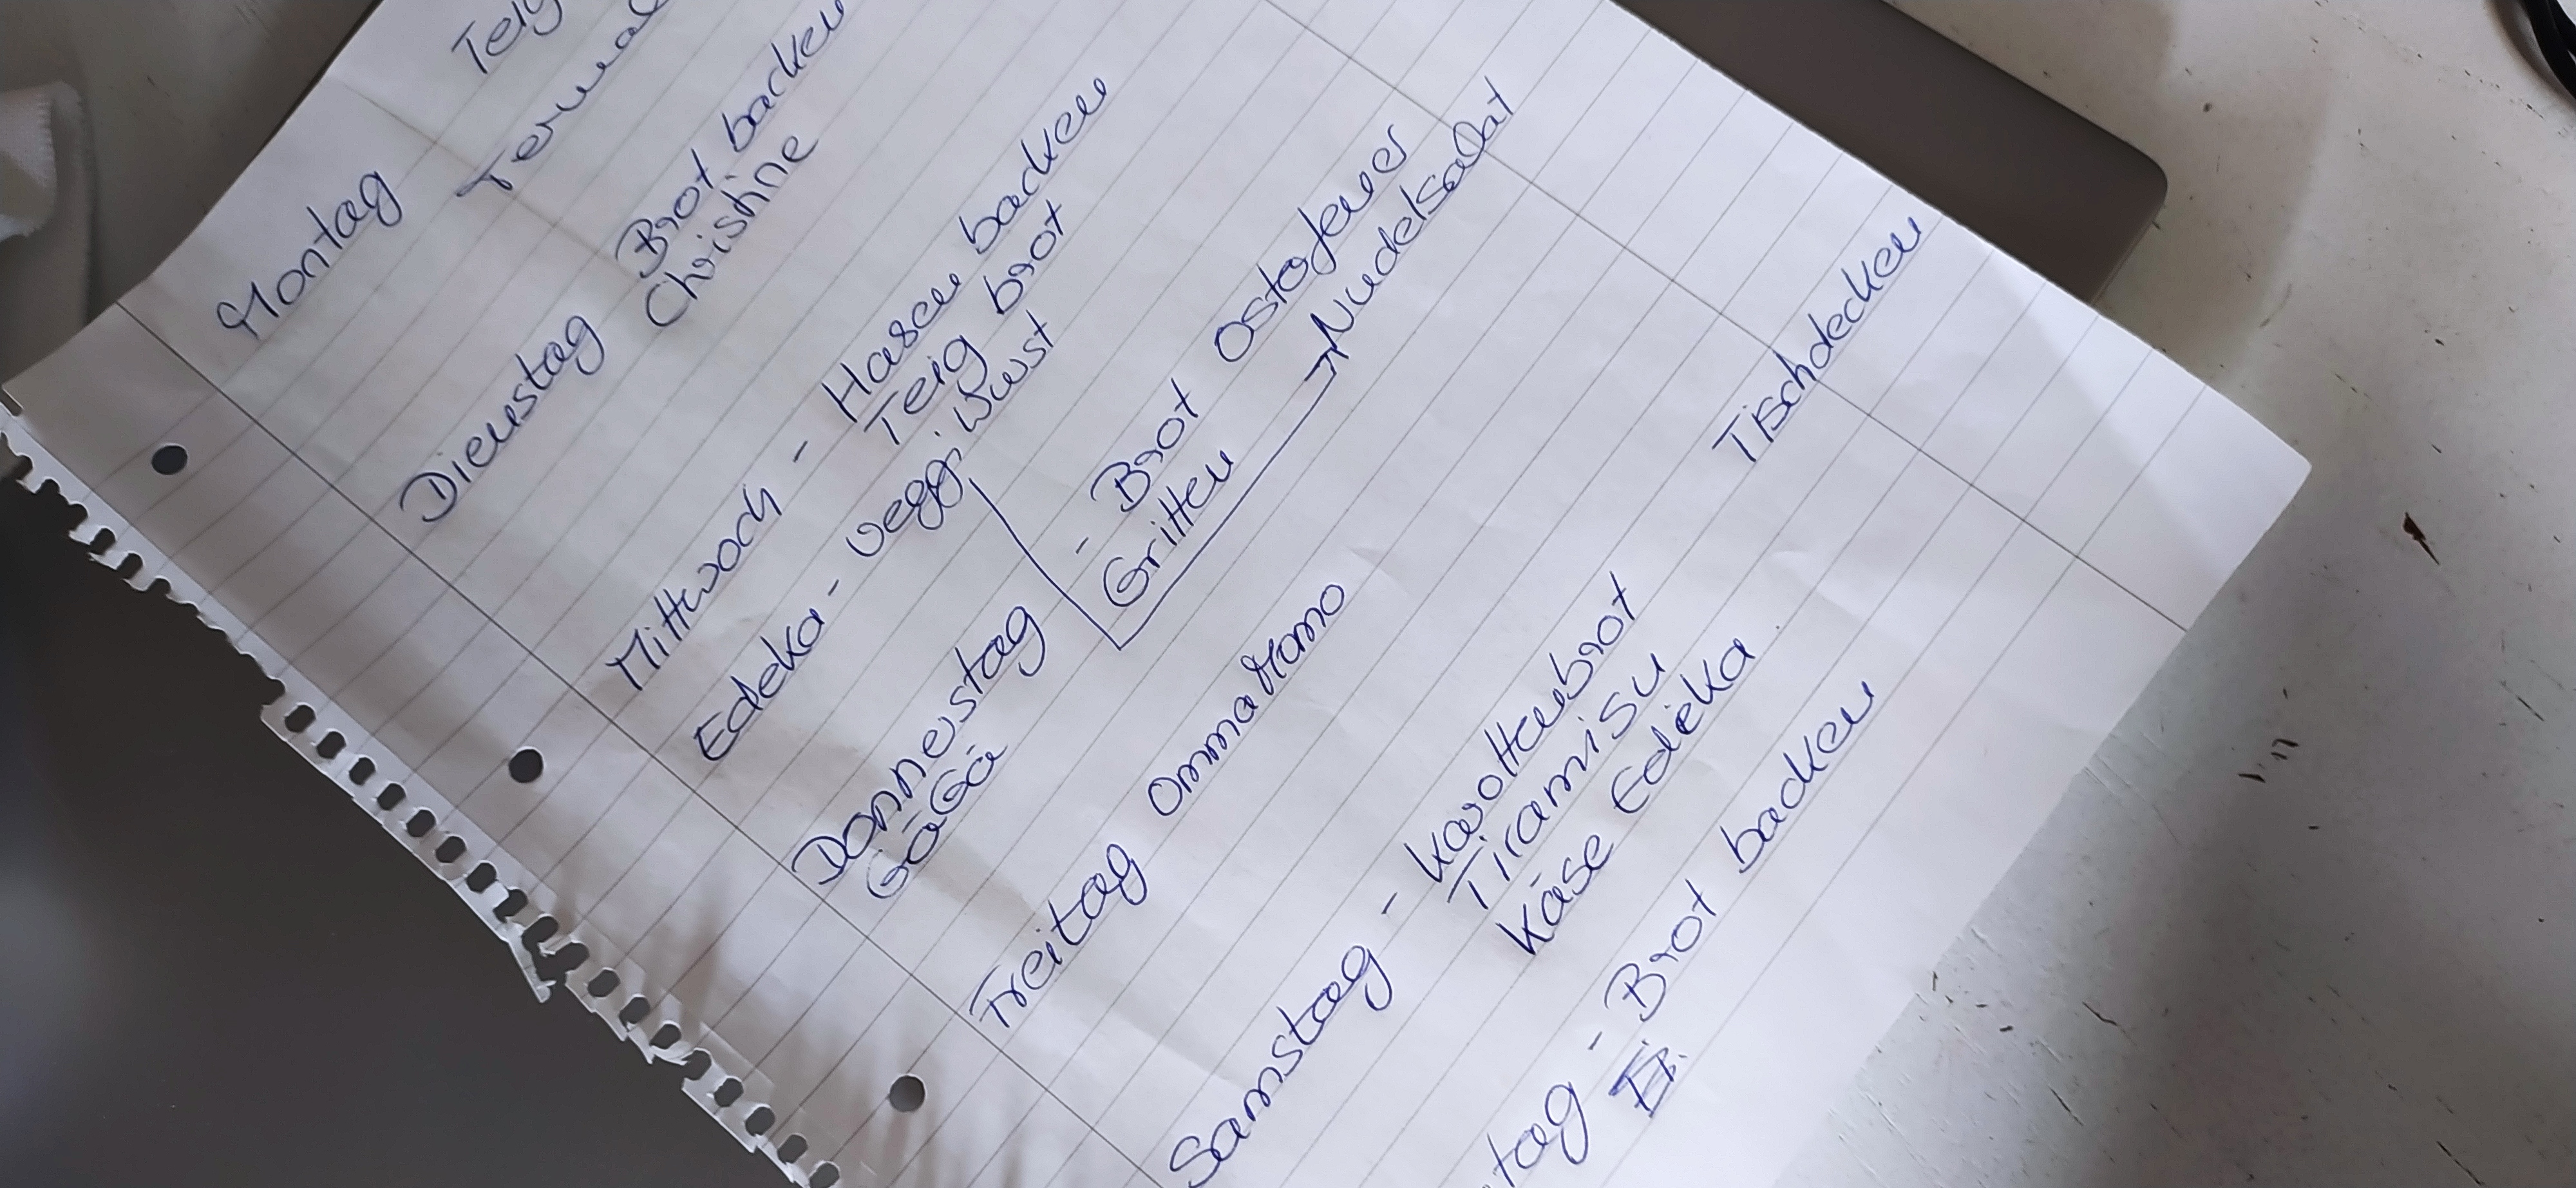 Montag Teig
Dienstag Brot backen
Christine
Mittwoch - Hasen backen
Teig brot
Edeka - veggi Wurst
- Brot Ostafeuer
Donnerstag Grillen → Nudelsalat
GäGä
Freitag Omma Momo
Tischdecken
Samstag - Karottenbrot
Tiramisu
Käse Edeka
tag - Brot backen